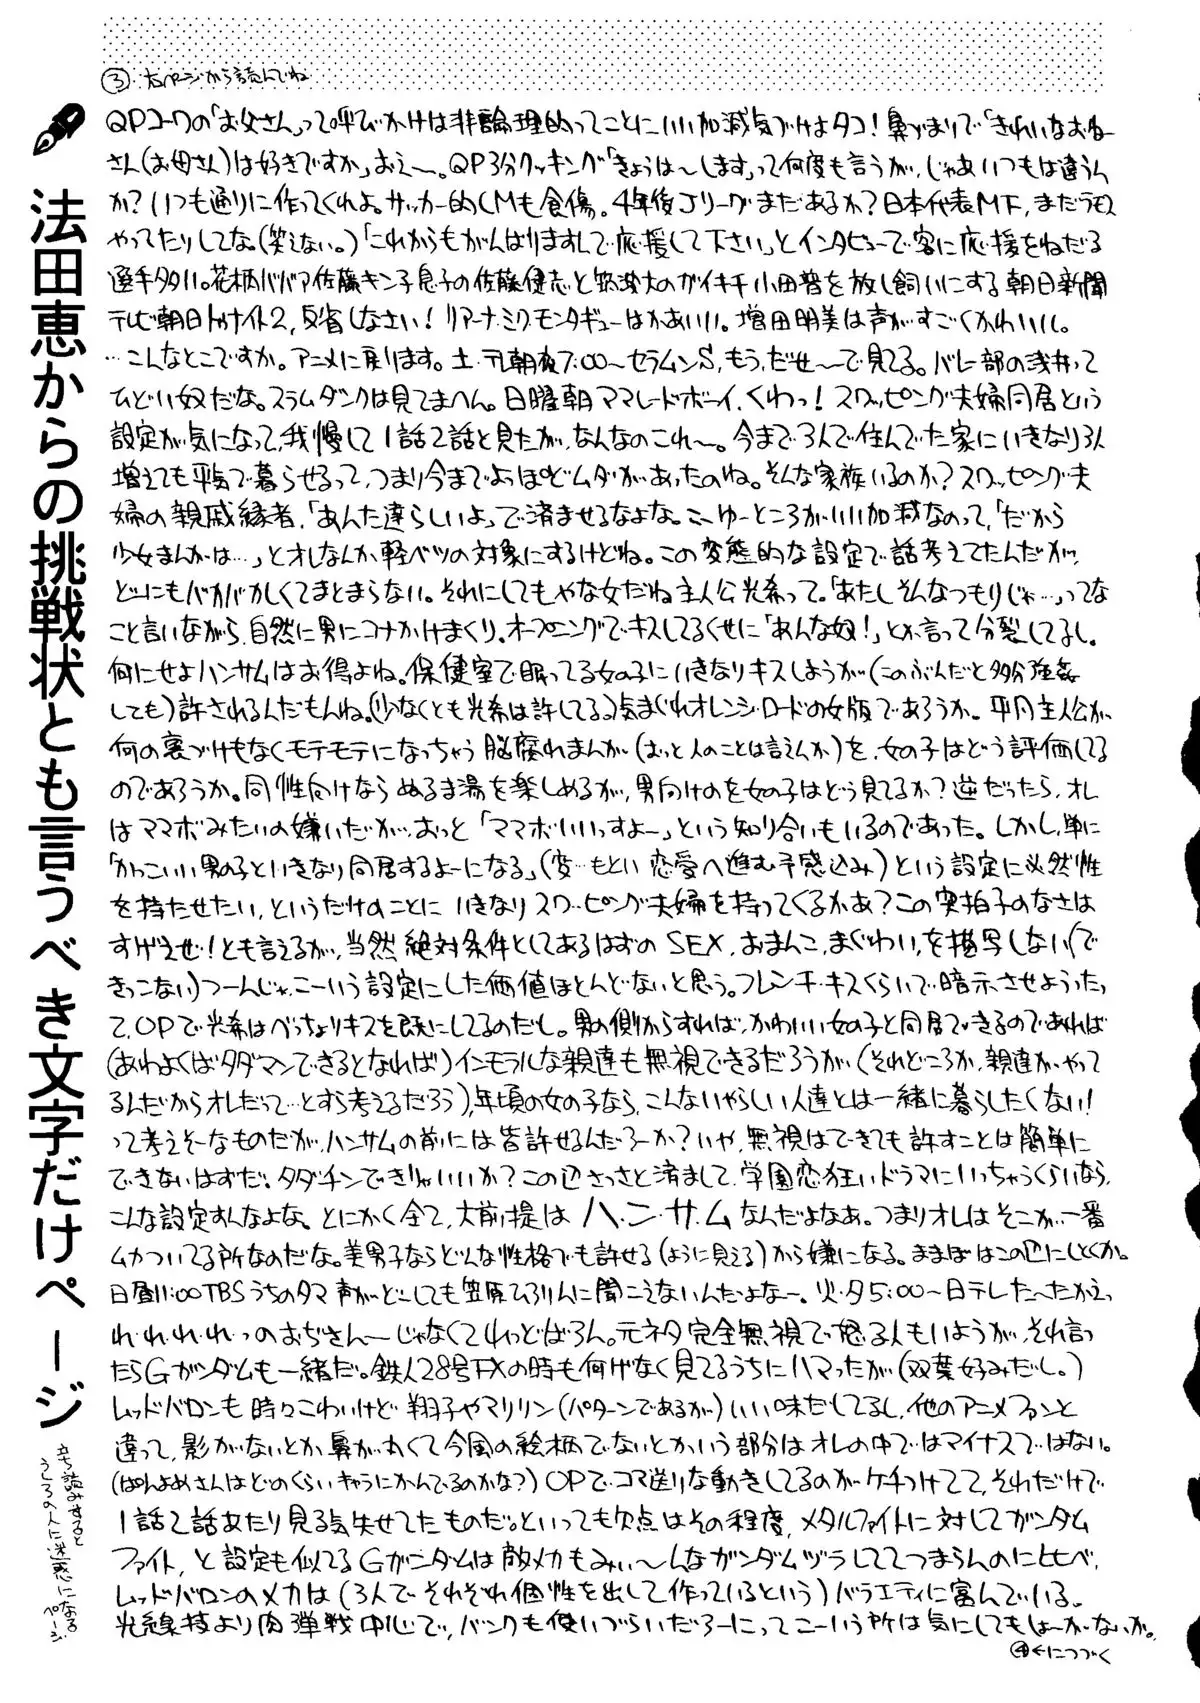 ③右ページから読んでね
法田恵からの挑戦状とも言うべき文字だけページ
立ち読みすると
うしろの人に迷惑になる
ページ
QPコーワの「お父さん」って呼びかけは非論理的ってことにいい加減気づけよタコ!鼻づまりで「きれいなおねー
さん(お母さん)は好きですか」おえ〜。QP3分クッキング「きょうは〜します」って何度も言うが、じゃあいつもは違うん
か?いつも通りに作ってくれよ。サッカー的CMも食傷。4年後Jリーグまだあるか?日本代表MF、まだラモス
やってたりしてな。(笑えない。)「これからもがんばりますんで応援して下さい」とインタビューで客に応援をねだる
選手多い。花柄ババァ佐藤キン子息子の佐藤健志と筑波大のガイキチ小田晋を放し飼いにする朝日新聞
テレビ朝日トゥナイト2、反省しなさい!リアーナ・ミク・モンタギューはかあいい。増田明美は声がすごくかわいい。
…こんなとこですか。アニメに戻ります。土・テレ朝夜7:00〜セラムンS、もう、だせ〜〜で見てる。バレー部の浅井って
ひどい奴だな。スラムダンクは見てまへん。日曜朝ママレードボーイ、くわっ!スワッピング夫婦同居という
設定が気になって、我慢して1話2話と見たが、なんなのこれ〜。今まで3人で住んでた家にいきなり3人
増えても平気で暮らせるって、つまり今までよっぽどムダがあったのね。そんな家族いるのか?スワッピング夫
婦の親戚縁者、「あんた達らしいよ」で済ませるなよな。こーゆーところがいい加減なのって、「だから
少女まんがは…」とオレなんか軽ベツの対象にするけどね。この変態的な設定で話考えてたんだが、
どーにもバカバカしくてまとまらない。それにしてもやな女だね主人公光希って。「あたしそんなつもりじゃ…」ってな
こと言いながら、自然に男にコナかけまくり。オープニングでキスしてるくせに「あんな奴!」とか言って分裂してるし。
何にせよハンサムはお得よね。保健室で眠ってる女の子にいきなりキスしようが(このぶんだと多分強姦
しても)許されるんだもんね。(少なくとも光希は許してる。)気まぐれオレンジ・ロードの女版であろうか。平凡主人公が、
何の裏づけもなくモテモテになっちゃう脳腐れまんが(おっと人のことは言えんか)を、女の子はどう評価してる
のであろうか。同性向けならぬるま湯を楽しめるが、男向けのを女の子はどう見てるか?逆だったら、オレ
はママボみたいの嫌いだが、おっと「ママボいいっすよー」という知り合いもいるのであった。しかし、単に
「かっこいい男の子といきなり同居するよーになる」(変…もとい恋愛へ進む予感込み)という設定に必然性
を持たせたい、というだけのことにいきなりスワッピング夫婦を持ってくるかあ?この突拍子のなさは
すげえぜ!とも言えるが、当然絶対条件としてあるはずのSEX、おまんこ、まぐわい、を描写しない(で
きっこない)つーんじゃ、こーいう設定にした価値ほとんどないと思う。フレンチ・キスくらいで暗示させようったっ
て、OPで光希はべっちょりキスを既にしてるのだし。男の側からすれば、かわいい女の子と同居できるのであれば
(あわよくばタダマンできるとなれば)インモラルな親達も無視できるだろうが、(それどころか、親達がやって
るんだからオレだって…とすら考えるだろう)、年頃の女の子なら、こんないやらしい人達とは一緒に暮らしたくない!
って考えそーなものだが、ハンサムの前には皆許せるんだろーか?いや、無視はできても許すことは簡単に
できないはずだ。タダチンできりゃいいか?この辺さっさと済まして、学園恋狂いドラマにいっちゃうくらいなら、
こんな設定すんなよな。とにかく全て、大前提はハ・ン・サ・ムなんだよなあ。つまりオレはそこが一番
ムカついてる所なのだな。美男子ならどんな性格でも許せる(ように見える)から嫌になる。ままぼはこの辺にしとくか。
日昼11:00TBSうちのタマ声がどーしても笠原ひろりんに聞こえないんだよなー。火・夕5:00〜日テレたーたかえっ
れ・れ・れ・れっのおぢさん〜じゃなくてれっどばろん。元ネタ完全無視でって怒る人もいようが、それ言っ
たらGガンダムも一緒だ。鉄人28号FXの時も何げなく見てるうちにハマったが(双葉好みだし。)
レッドバロンも時々こわいけど翔子やマリリン(パターンであるが)いい味だしてるし、他のアニメファンと
違って、影がないとか鼻が丸くて今風の絵柄でないとかいう部分はオレの中ではマイナスではない。
(ぱんよめさんはどのくらいキャラにかんでるのかな?)OPでコマ送りな動きしてるのがケチつけてて、それだけで
1話2話あたり見る気失せてたものだ。といっても欠点はその程度、メタルファイトに対してガンダム
ファイト、と設定も似てるGガンダムは敵メカもみぃ〜んなガンダムヅラしててつまらんのに比べ、
レッドバロンのメカは(3人でそれぞれ個性を出して作っているという)バラエティに富んでいる。
光線技より肉弾戦中心で、バンクも使いづらいだろーにってこーいう所は気にしてもしょーがないか。
④←につづく